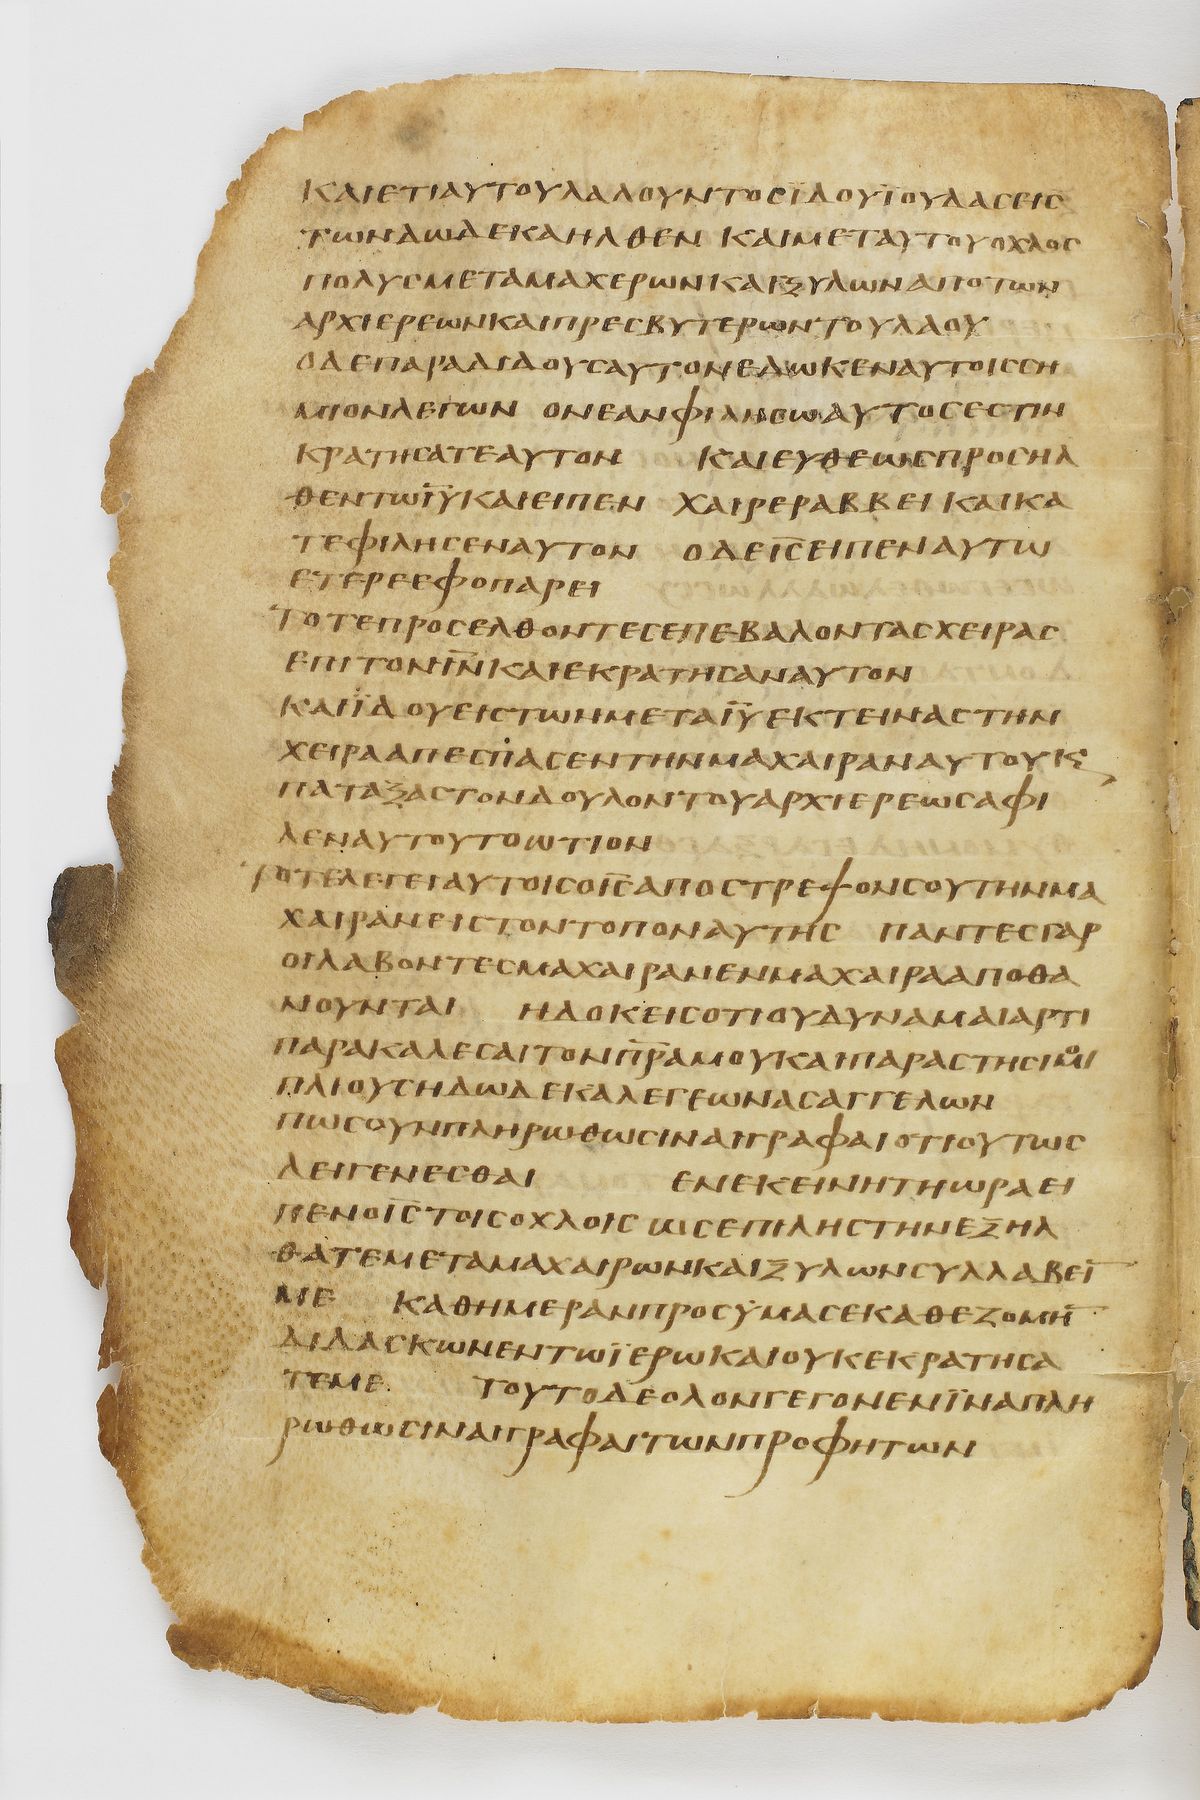 ΚΑΙΕΤΙΑΥΤΟΥΛΑΛΟΥΝΤΟΣΪΔΟΥΪΟΥΔΑΣΕΙΣ
ΤΩΝΔΩΔΕΚΑΗΛΘΕΝ ΚΑΙΜΕΤΑΥΤΟΥΟΧΛΟΣ
ΠΟΛΥΣΜΕΤΑΜΑΧΕΡΩΝΚΑΙΞΥΛΩΝΑΠΟΤΩΝ
ΑΡΧΙΕΡΕΩΝΚΑΙΠΡΕΣΒΥΤΕΡΩΝΤΟΥΛΑΟΥ
ΟΔΕΠΑΡΑΔΙΔΟΥΣΑΥΤΟΝΕΔΩΚΕΝΑΥΤΟΙΣΣΗ
ΜΙΟΝΛΕΓΩΝ ΟΝΕΑΝΦΙΛΗΣΩΑΥΤΟΣΕΣΤΙΝ
ΚΡΑΤΗΣΑΤΕΑΥΤΟΝ ΚΑΙΕΥΘΕΩΣΠΡΟΣΗΛ
ΘΕΝΤΩΙ̅Υ̅ΚΑΙΕΙΠΕΝ ΧΑΙΡΕΡΑΒΒΕΙ ΚΑΙΚΑ
ΤΕΦΙΛΗΣΕΝΑΥΤΟΝ ΟΔΕΙ̅Σ̅ΕΙΠΕΝΑΥΤΩ
ΕΤΕΡΕΕΦΟΠΑΡΕΙ
ΤΟΤΕΠΡΟΣΕΛΘΟΝΤΕΣΕΠΕΒΑΛΟΝΤΑΣΧΕΙΡΑΣ
ΕΠΙΤΟΝΙ̅Ν̅ΚΑΙΕΚΡΑΤΗΣΑΝΑΥΤΟΝ
ΚΑΙΪΔΟΥΕΙΣΤΩΝΜΕΤΑΙ̅Υ̅ΕΚΤΕΙΝΑΣΤΗΝ
ΧΕΙΡΑΑΠΕΣΠΑΣΕΝΤΗΝΜΑΧΑΙΡΑΝΑΥΤΟΥΚϛ
ΠΑΤΑΞΑΣΤΟΝΔΟΥΛΟΝΤΟΥΑΡΧΙΕΡΕΩΣΑΦΙ
ΛΕΝΑΥΤΟΥΤΟΩΤΙΟΝ
ΤΟΤΕΛΕΓΕΙΑΥΤΟΙΣΟΙ̅Σ̅ΑΠΟΣΤΡΕΦΟΝΣΟΥΤΗΝΜΑ
ΧΑΙΡΑΝΕΙΣΤΟΝΤΟΠΟΝΑΥΤΗΣ ΠΑΝΤΕΣΓΑΡ
ΟΙΛΑΒΟΝΤΕΣΜΑΧΑΙΡΑΝΕΝΜΑΧΑΙΡΑΑΠΟΘΑ
ΝΟΥΝΤΑΙ ΗΔΟΚΕΙΣΟΤΙΟΥΔΥΝΑΜΑΙΑΡΤΙ
ΠΑΡΑΚΑΛΕΣΑΙΤΟΝΠ̅Ρ̅Α̅ΜΟΥΚΑΙΠΑΡΑΣΤΗΣΙΜΟΙ
ΠΛΙΟΥΣΗΔΩΔΕΚΑΛΕΓΕΩΝΑΣΑΓΓΕΛΩΝ
ΠΩΣΟΥΝΠΛΗΡΩΘΩΣΙΝΑΙΓΡΑΦΑΙΟΤΙΟΥΤΩΣ
ΔΕΙΓΕΝΕΣΘΑΙ ΕΝΕΚΕΙΝΗΤΗΩΡΑΕΙ
ΠΕΝΟΙ̅Σ̅ΤΟΙΣΟΧΛΟΙΣ ΩΣΕΠΙΛΗΣΤΗΝΕΞΗΛ
ΘΑΤΕΜΕΤΑΜΑΧΑΙΡΩΝΚΑΙΞΥΛΩΝΣΥΛΛΑΒΕΙ̅
ΜΕ ΚΑΘΗΜΕΡΑΝΠΡΟΣΫΜΑΣΕΚΑΘΕΖΟΜΗ̅
ΔΙΔΑΣΚΩΝΕΝΤΩΪΕΡΩΚΑΙΟΥΚΕΚΡΑΤΗΣΑ
ΤΕΜΕ ΤΟΥΤΟΔΕΟΛΟΝΓΕΓΟΝΕΝΪΝΑΠΛΗ
ΡΩΘΩΣΙΝΑΙΓΡΑΦΑΙΤΩΝΠΡΟΦΗΤΩΝ